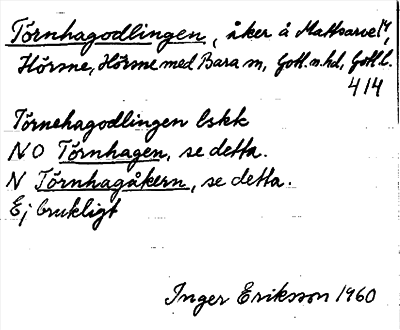 Törnhagodlingen, åker å Mattsarve 14,
Hörsne, Hörsne med Bara sn, Gotl. n. hd, Gotl. l.
4 14
Törnehagodlingen lskk
NO Törnhagen, se detta.
N Törnhagåkern, se detta.
Ej brukligt
Inger Eriksson 1960